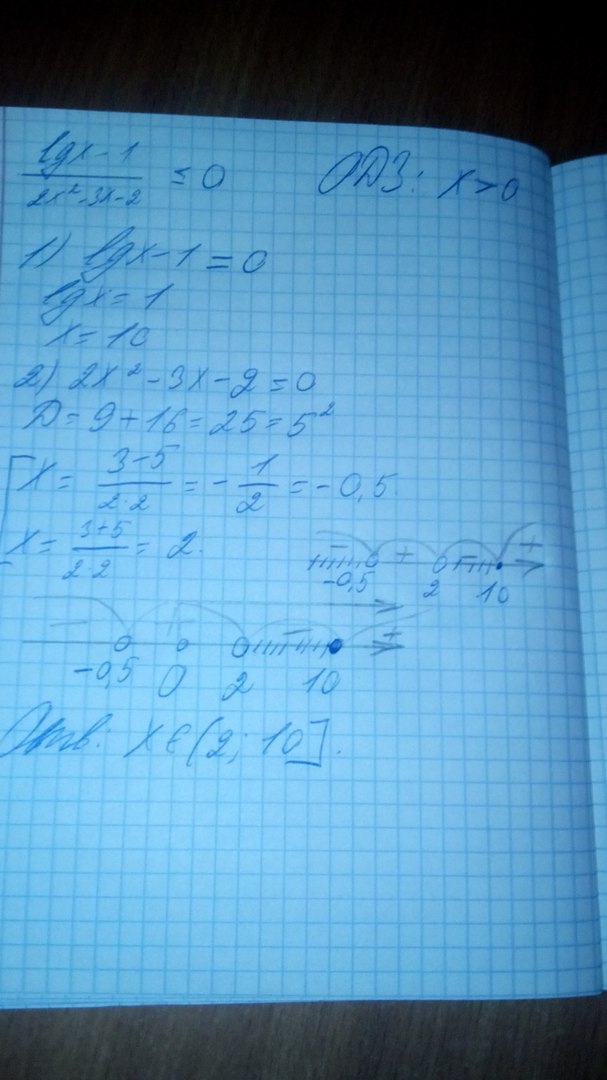 (lgx-1)/(2x²-3x-2) ≤ 0 ОДЗ: x>0
1) lgx-1=0
lgx=1
x=10
2) 2x²-3x-2=0
D=9+16=25=5²
[x= (3-5)/(2·2) = -1/2 = -0,5.
x= (3+5)/(2·2) = 2.
- + - +
-0,5 2 10
- + - +
-0,5 0 2 10
Отв: x∈(2; 10].